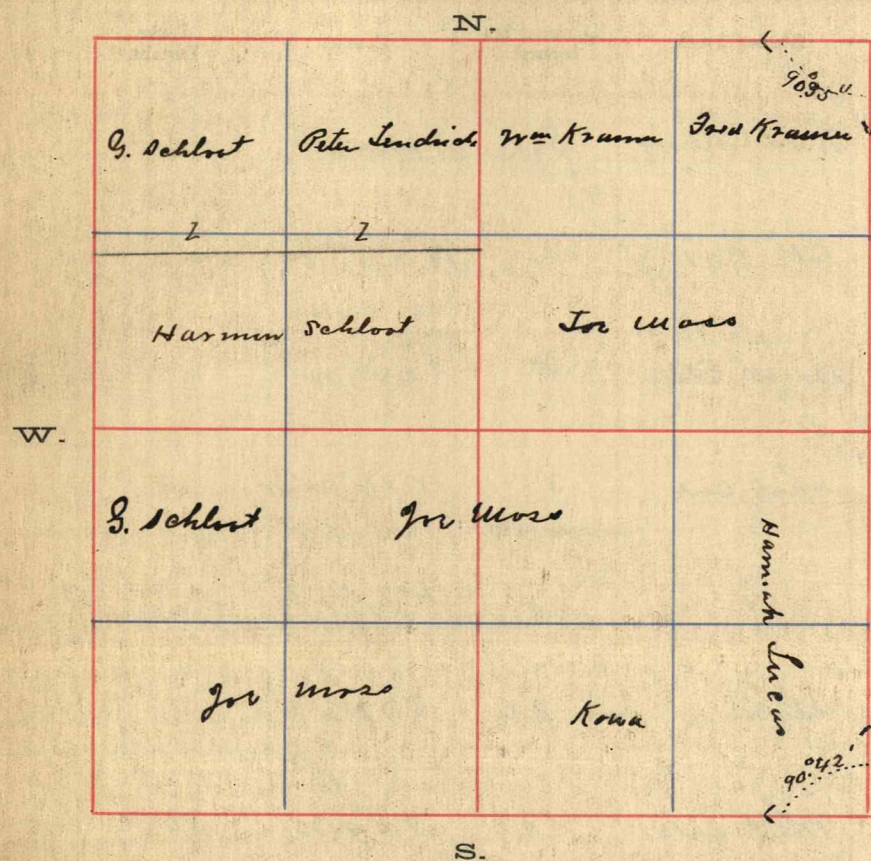 N.
90° 35"
G. Schloot
Peter Lendrich
Wm Kramer
Fred Kramer
Z
Z
Harmen Schloot
Joe Moss
W.
G. Schloot
Joe Moss
Hannah Lucas
Joe Moss
Kowa
90° 42'
S.